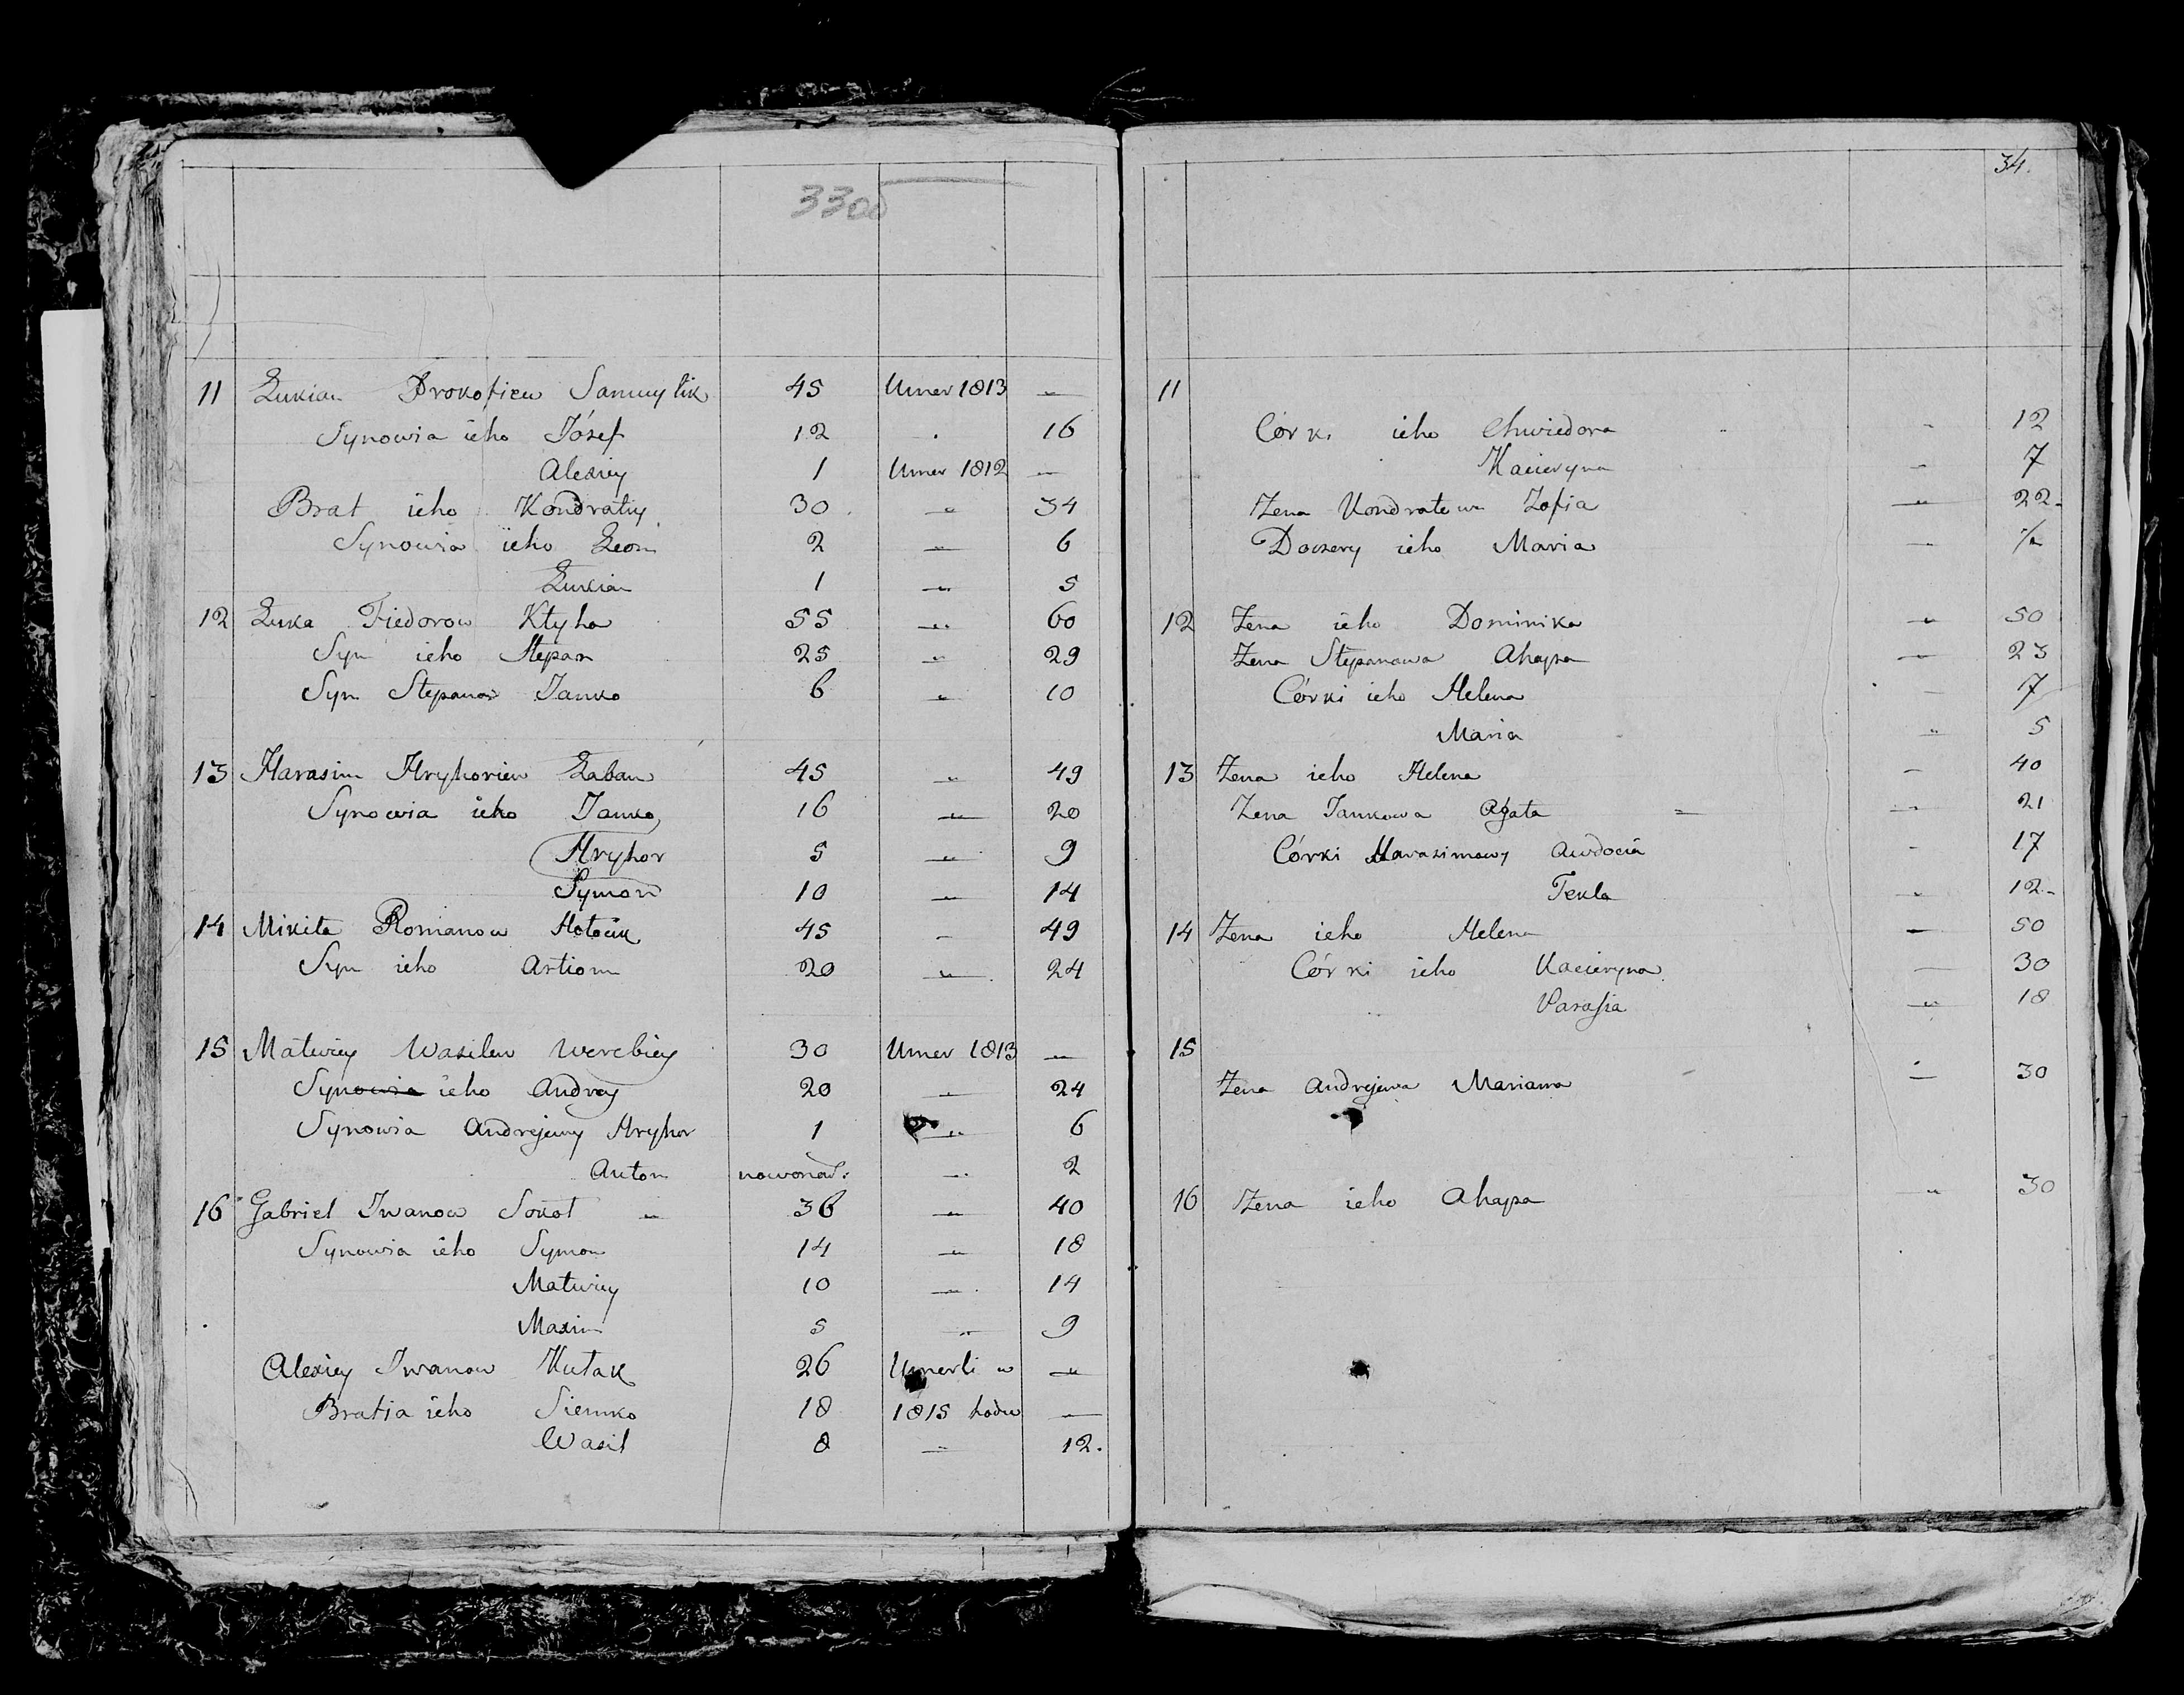 3300
11 Łukian Prokofiew Samuylik 45 Umer 1813 —
Synowia ieho Józef 12 . 16
Alexiey 1 Umer 1812 —
Brat ieho Kondratiy 30 — 34
Synowia ieho Leon 2 — 6
Łukian 1 — 5
12 Łuka Fiedorow Kłyha 55 — 60
Syn ieho Stepan 25 — 29
Syn Stepanow Janko 6 — 10
13 Harasim Hryhoriew Łaban 45 — 49
Synowia ieho Janko 16 — 20
Hryhor 5 — 9
Symon 10 — 14
14 Mikita Romanow 45 — 49
Syn ieho Artiom 20 — 24
15 Matwiey Wasilew Werebiey 30 Umer 1813 —
Synowia ieho Andrey 20 — 24
Synowia Andrejewy Hryhor 1 — 6
Anton nowonar: — 2
16 Gabriel Iwanow Sokoł — 36 — 40
Synowia ieho Symon 14 — 18
Matwiey 10 — 14
Maxim 5 — 9
Alexiey Iwanow Kutak 26 Umerli w —
Bratia ieho Siemko 18 1815 hodu —
Wasil 8 — 12.
34.
11
Córki ieho Chwiedora — 12
Kacieryna — 7
Żena Kondratowa Zofia — 22.
Doczery ieho Maria —
12 Żena ieho Dominika — 50
Żena Stepanowa Ahapa — 23
Córki ieho Helena — 7
Maria — 5
13 Żena ieho Helena — 40
Żena Jankowa Agata — — 21
Córki Harasimowy Awdocia — 17
Tekla — 12-
14 Żena ieho Helena — 50
Córki ieho Kacieryna — 30
Parasia — 18
15
Żena Andrejewa Marianna — 30
16 Żena ieho Ahapa — 30